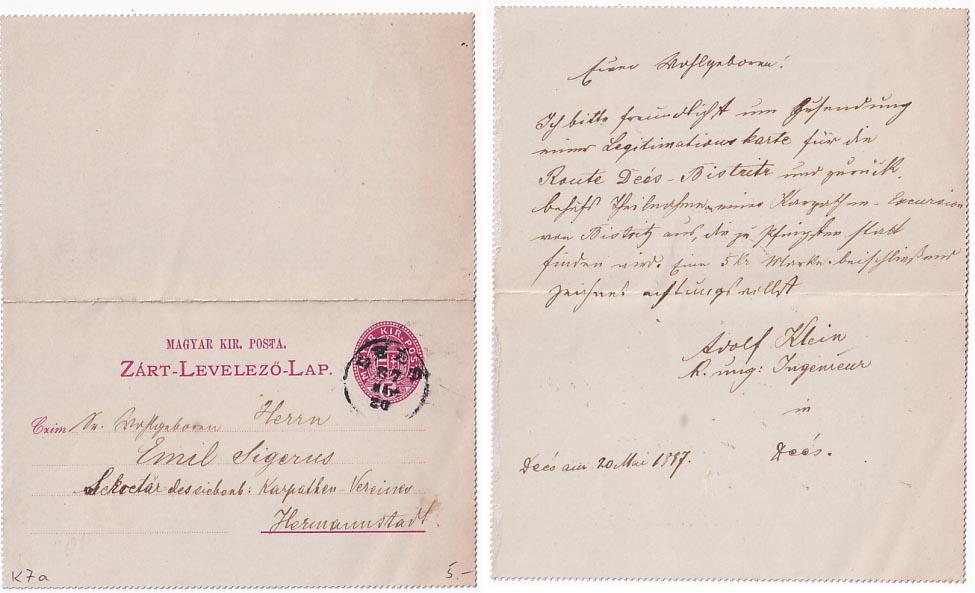 MAGYAR KIR. POSTA.
ZÁRT-LEVELEZŐ-LAP.
MAGYAR KIR. POSTA
87
20
Czim Sr. Wohlgeboren Herrn
Emil Sigerus
Sekretär des siebenb: Karpathen-Vereines
Hermannstadt
K7a
5.-
Euer Wohlgeboren!
Ich bitte freundlichst um Zusendung
einer Legitimationskarte für die
Route Deés-Bistritz und zurück,
behufs Theilnahme einer Karpathen-Excursion
von Bistritz aus, die zu Pfingsten statt
finden wird. Eine 5 Kr Marke beischließend
zeichnet achtungsvollst
Adolf Klein
k. ung: Ingenieur
in
Deés.
Deés am 20 Mai 1887.